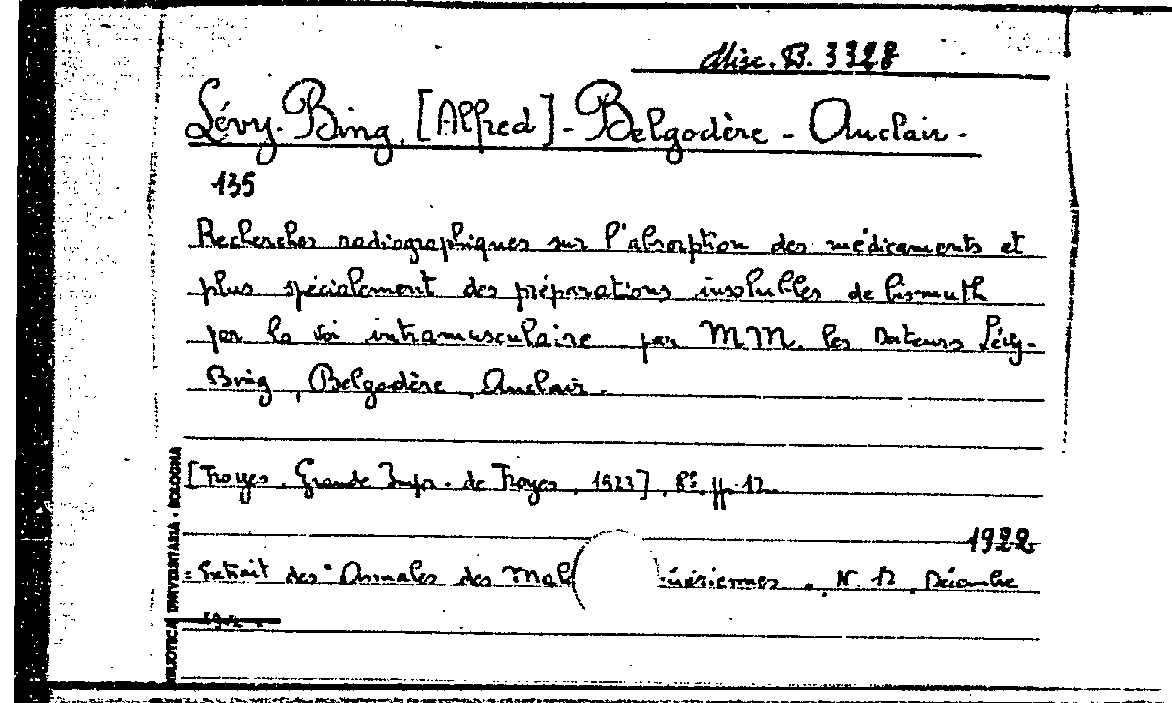 Misc. B. 3328
Lévy-Bing, [Alfred] - Belgodère - Auclair -
135
Recherches radiographiques sur l'absorption des médicaments et
plus spécialement des préparations insolubles de bismuth
par la voi intramusculaire par MM. les Docteurs Lévy-
Bing, Belgodère, Auclair.
[Troyes. Grande Impr. de Troyes, 1923], 8°. pp. 12.
1922
= Extrait des "Annales des Mal nériennes", N. 12, Décembre
BIBLIOTECA UNIVERSITARIA - BOLOGNA